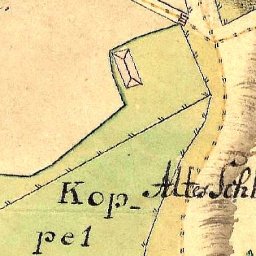 Kop-
pel
Alte Schl